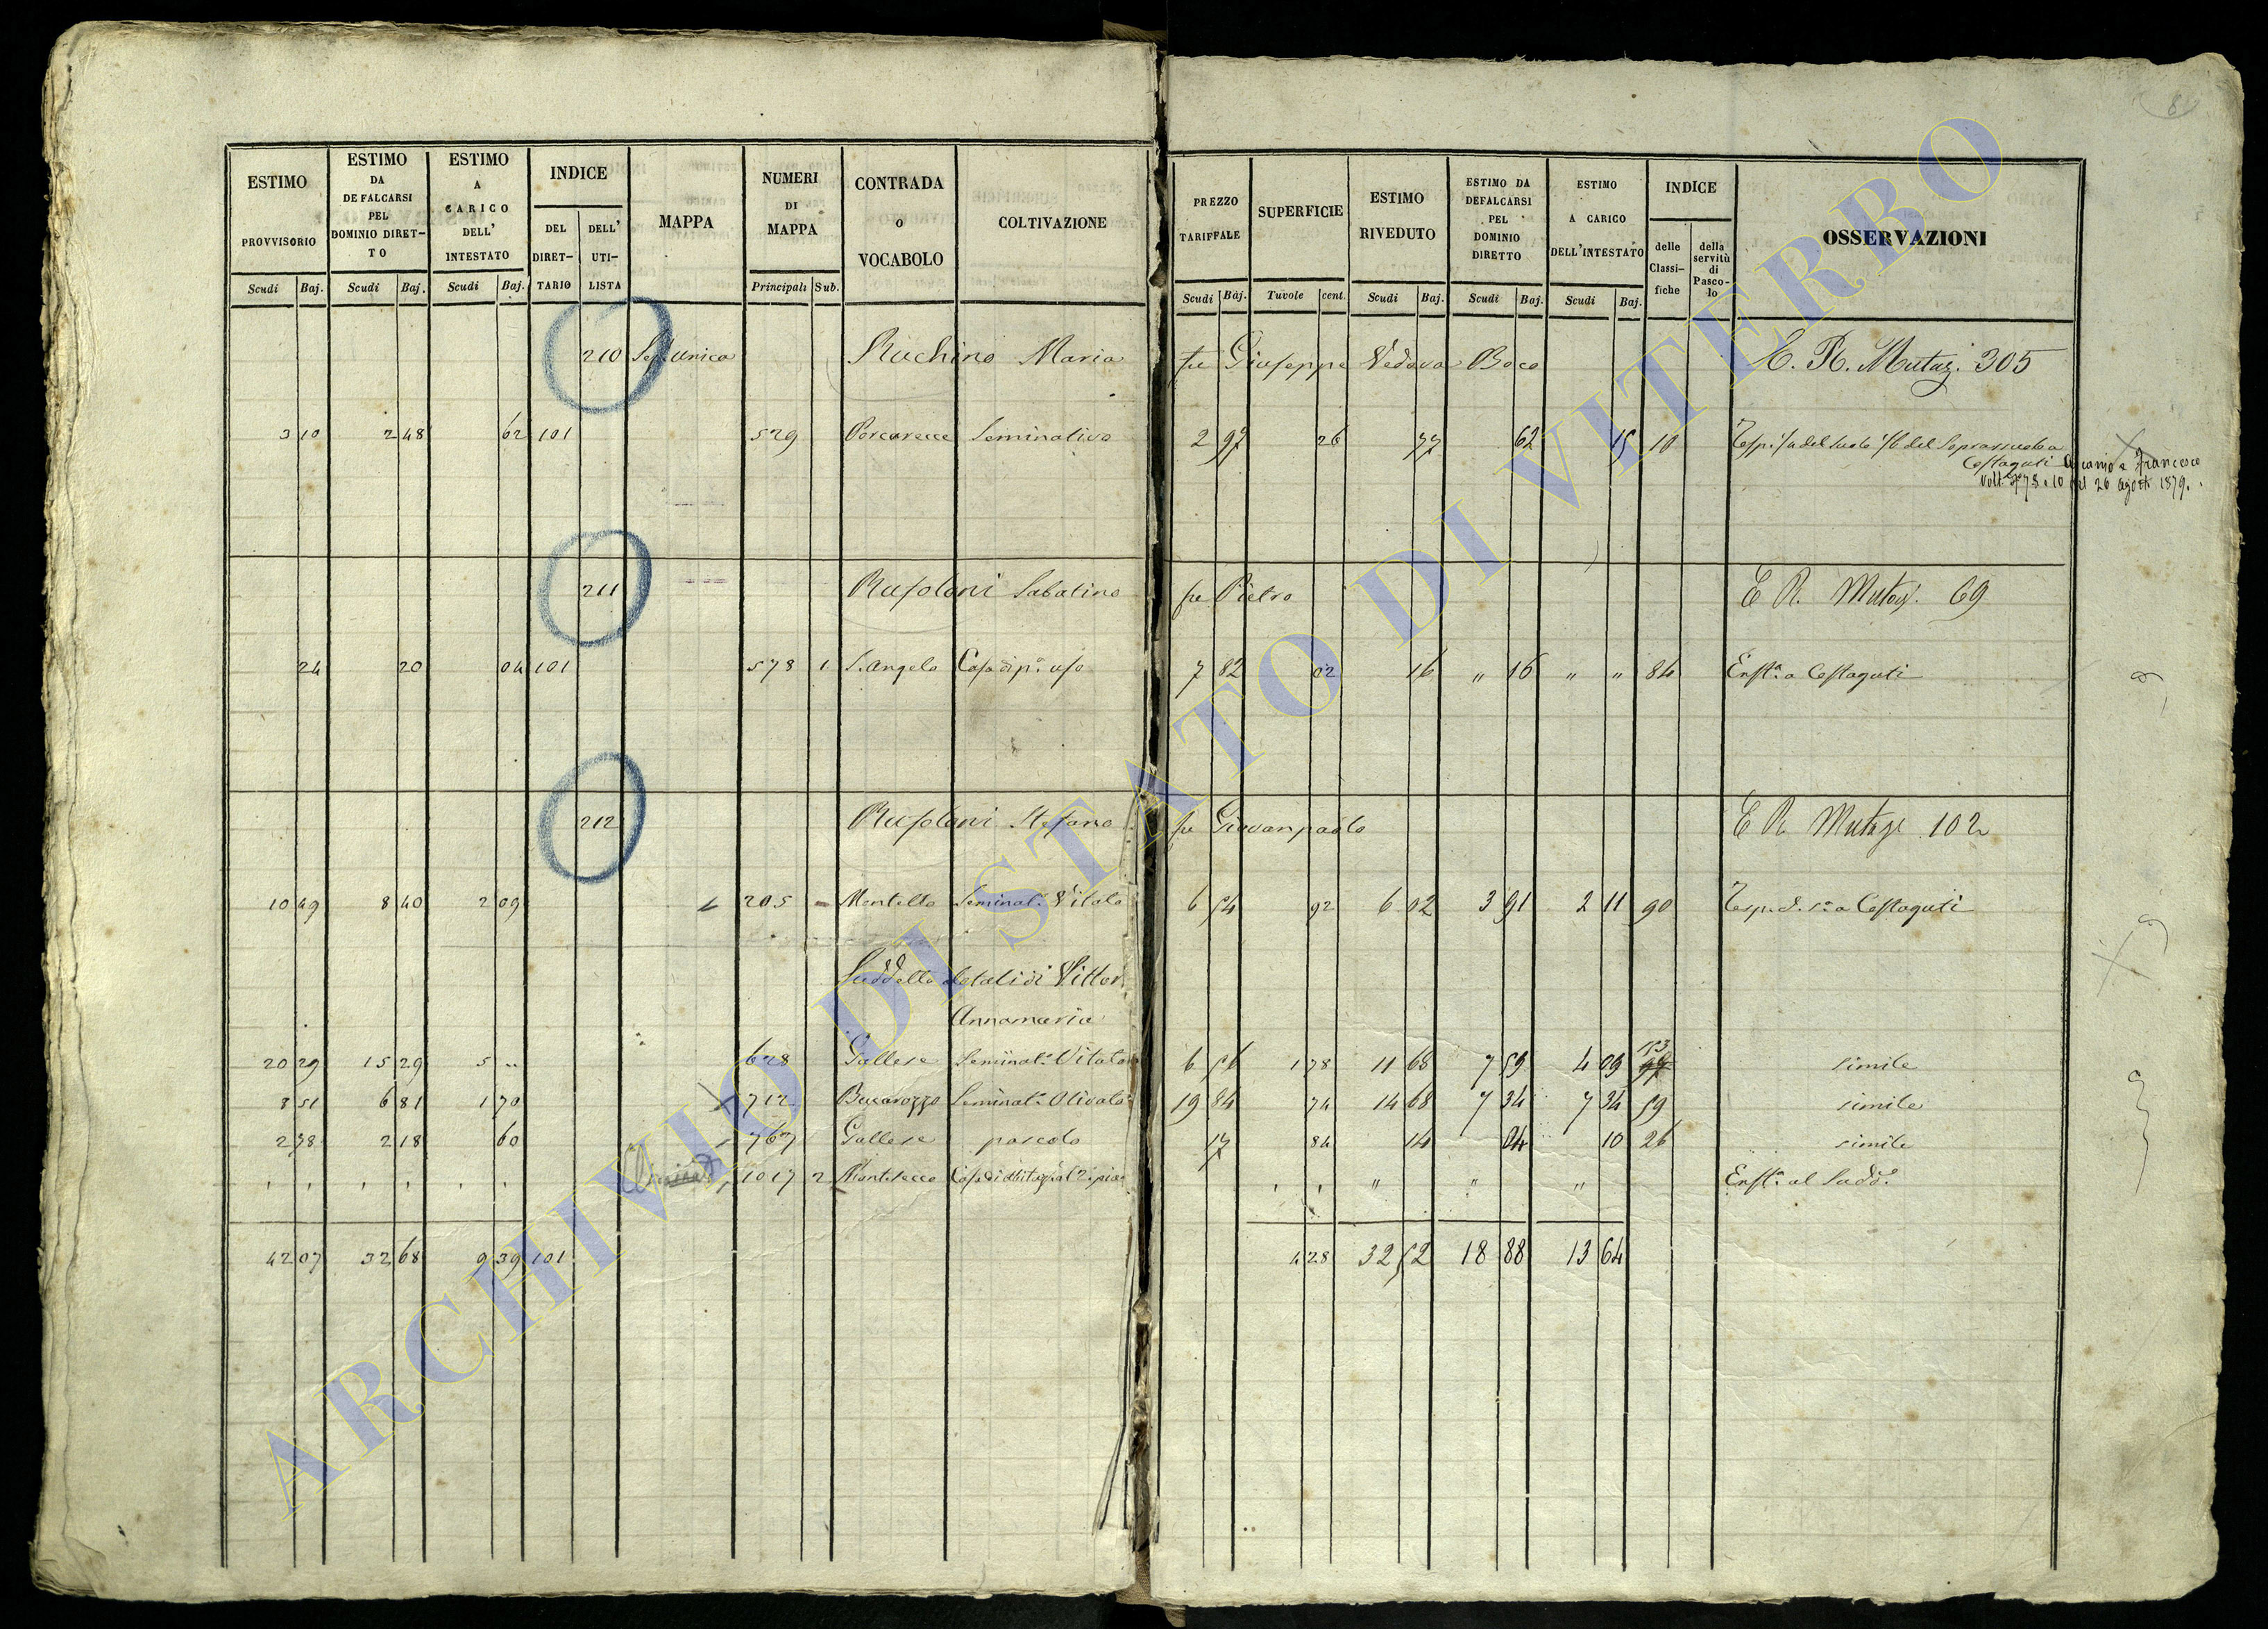 ESTIMO PROVVISORIO Scudi Baj.
ESTIMO DA DEFALCARSI PEL DOMINIO DIRET- TO Scudi Baj.
ESTIMO A CARICO DELL' INTESTATO Scudi Baj.
INDICE DEL DIRET- TARIO DELL' UTI- LISTA
MAPPA
NUMERI DI MAPPA Principali Sub.
CONTRADA o VOCABOLO
COLTIVAZIONE
PREZZO TARIFFALE Scudi Baj.
SUPERFICIE Tavole cent.
ESTIMO RIVEDUTO Scudi Baj.
ESTIMO DA DEFALCARSI PEL DOMINIO DIRETTO Scudi Baj.
ESTIMO A CARICO DELL'INTESTATO Scudi Baj.
INDICE delle Classi- fiche della servitù di Pasco- lo
OSSERVAZIONI
210 Sez. Unica Ruchino Maria fu Giuseppe Vedova Boco E. R. Mutaz. 305
3 10 2 48 62 101 529 Porcarecce Seminativo 2 97 26 77 62 15 10
Costaguti Ascanio e Francesco
Volt. 78 10 del 26 Agosto 1879.
211 Rufoloni Sabatino fu Pietro E R. Mutaz. 69
24 20 04 101 578 1 S. Angelo Casa di p.o uso 7 82 02 16 " 16 " " 84 Enft.a a Costaguti
212 Rufoloni Stefano fu Giovanpaolo E R. Mutaz. 102
10 49 8 40 2 09 205 Montello Seminat.o Vitato 6 54 92 6 02 3 91 2 11 90 a Costaguti
Suddetto dotali di Vittori
Annamaria
20 29 15 29 5 .. 628 Gallese Seminat.o Vitato 6 56 1 78 11 68 7 59 4 09 153 simile
8 51 6 81 1 70 712 Bucarozzo Seminat.o Olivato 19 84 74 14 68 7 34 7 34 59 simile
2 78 2 18 60 767 Gallese pascolo 17 84 14 04 10 26 simile
1017 2 Montesecco " " " Enft.a al Sudd.o
42 07 32 68 9 39 101 4 28 32 52 18 88 13 64
ARCHIVIO DI STATO DI VITERBO